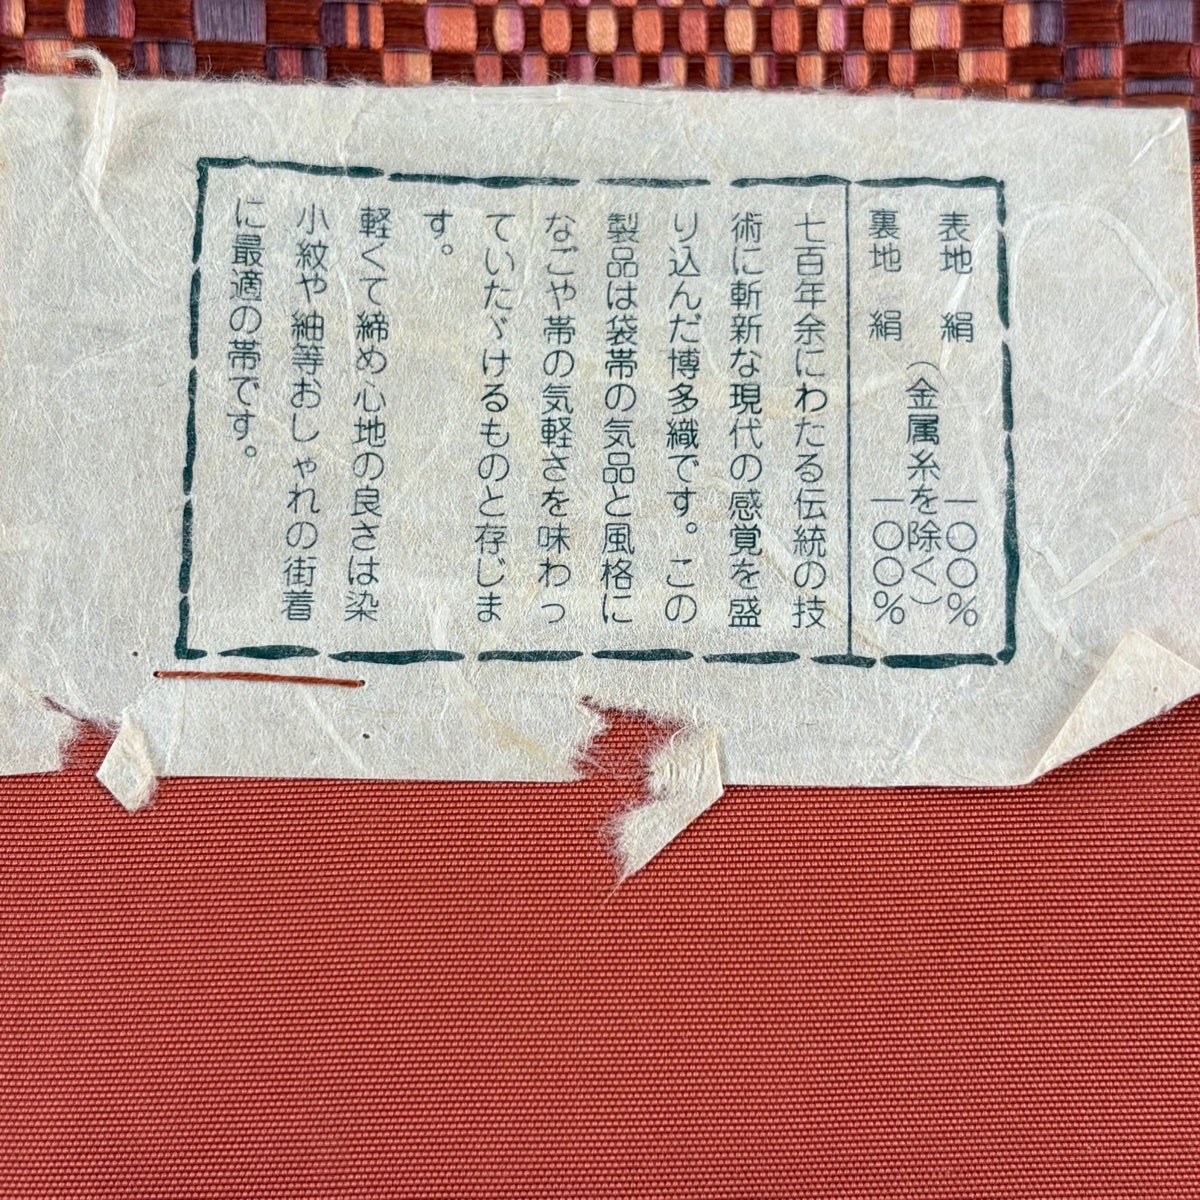 表地　絹　一〇〇%
（金属糸を除く）
裏地　絹　一〇〇%
七百年余にわたる伝統の技
術に斬新な現代の感覚を盛
り込んだ博多織です。この
製品は袋帯の気品と風格に
なごや帯の気軽さを味わっ
ていたゞけるものと存じま
す。
軽くて締め心地の良さは染
小紋や紬等おしゃれの街着
に最適の帯です。